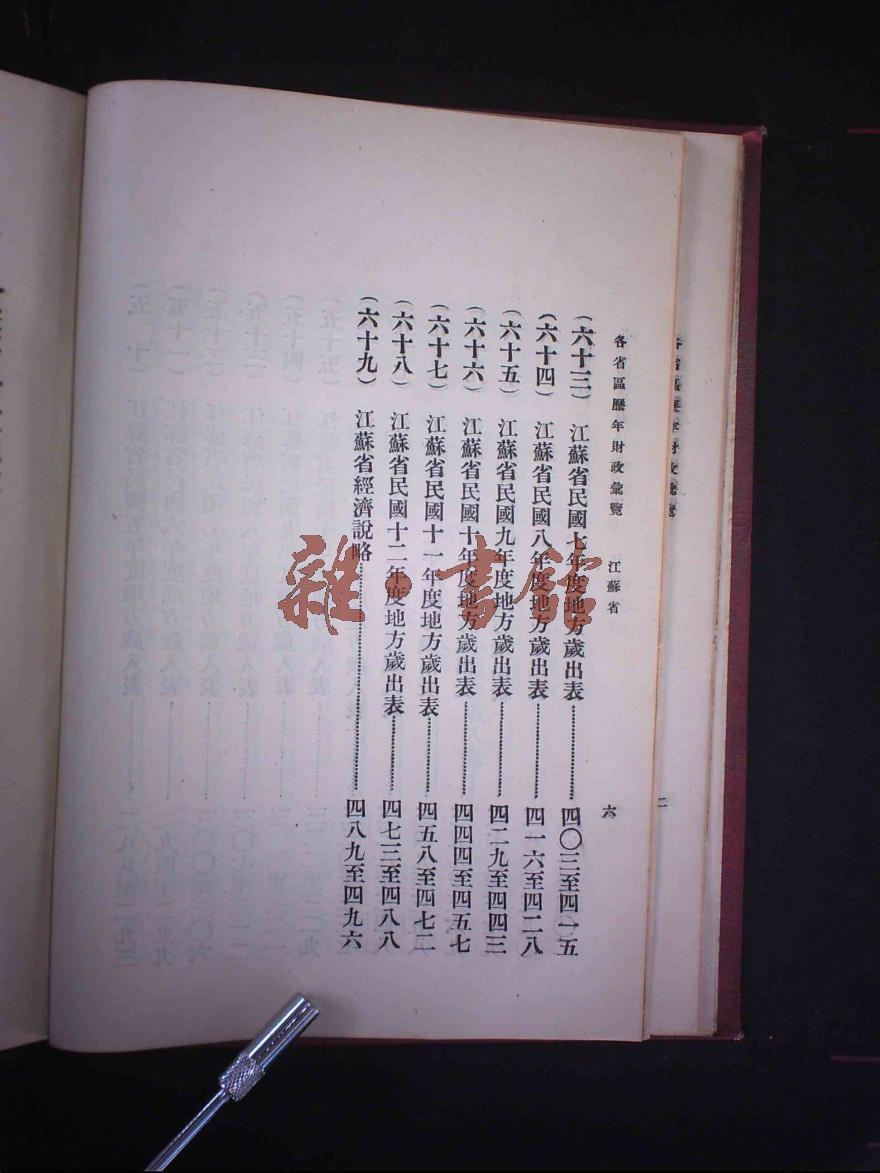 各省區歷年財政彙覽 江蘇省 六
(六十三) 江蘇省民國七年度地方歲出表……四〇三至四一五
(六十四) 江蘇省民國八年度地方歲出表……四一六至四二八
(六十五) 江蘇省民國九年度地方歲出表……四二九至四四三
(六十六) 江蘇省民國十年度地方歲出表……四四四至四五七
(六十七) 江蘇省民國十一年度地方歲出表……四五八至四七二
(六十八) 江蘇省民國十二年度地方歲出表……四七三至四八八
(六十九) 江蘇省經濟說略……四八九至四九六
雜·書館